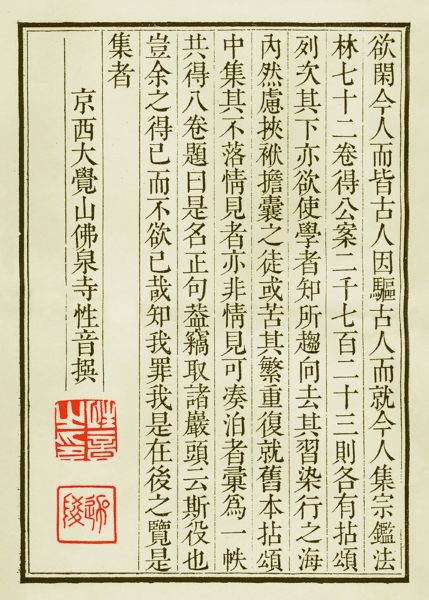 欲閑今人而皆古人因驅古人而就今人集宗鑑法
林七十二卷得公案二千七百二十三則各有拈頌
列次其下亦欲使學者知所趨向去其習染行之海
內然慮挾袱擔囊之徒或苦其繁重復就舊本拈頌
中集其不落情見者亦非情見可凑泊者彙爲一帙
共得八卷題曰是名正句葢竊取諸巖頭云斯役也
豈余之得已而不欲已哉知我罪我是在後之覽是
集者
京西大覺山佛泉寺性音撰
性音之印
迦陵